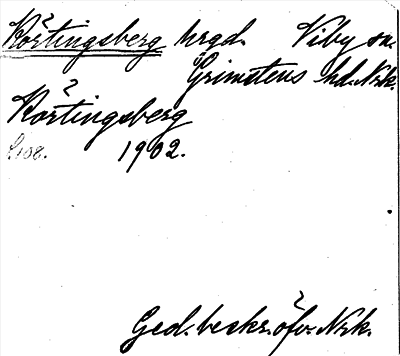 Körtingsberg hrgd. Viby sn.
Grimstens hd. Nrk.
Körtingsberg
1902.
Ged. beskr. öfv. Nrk.